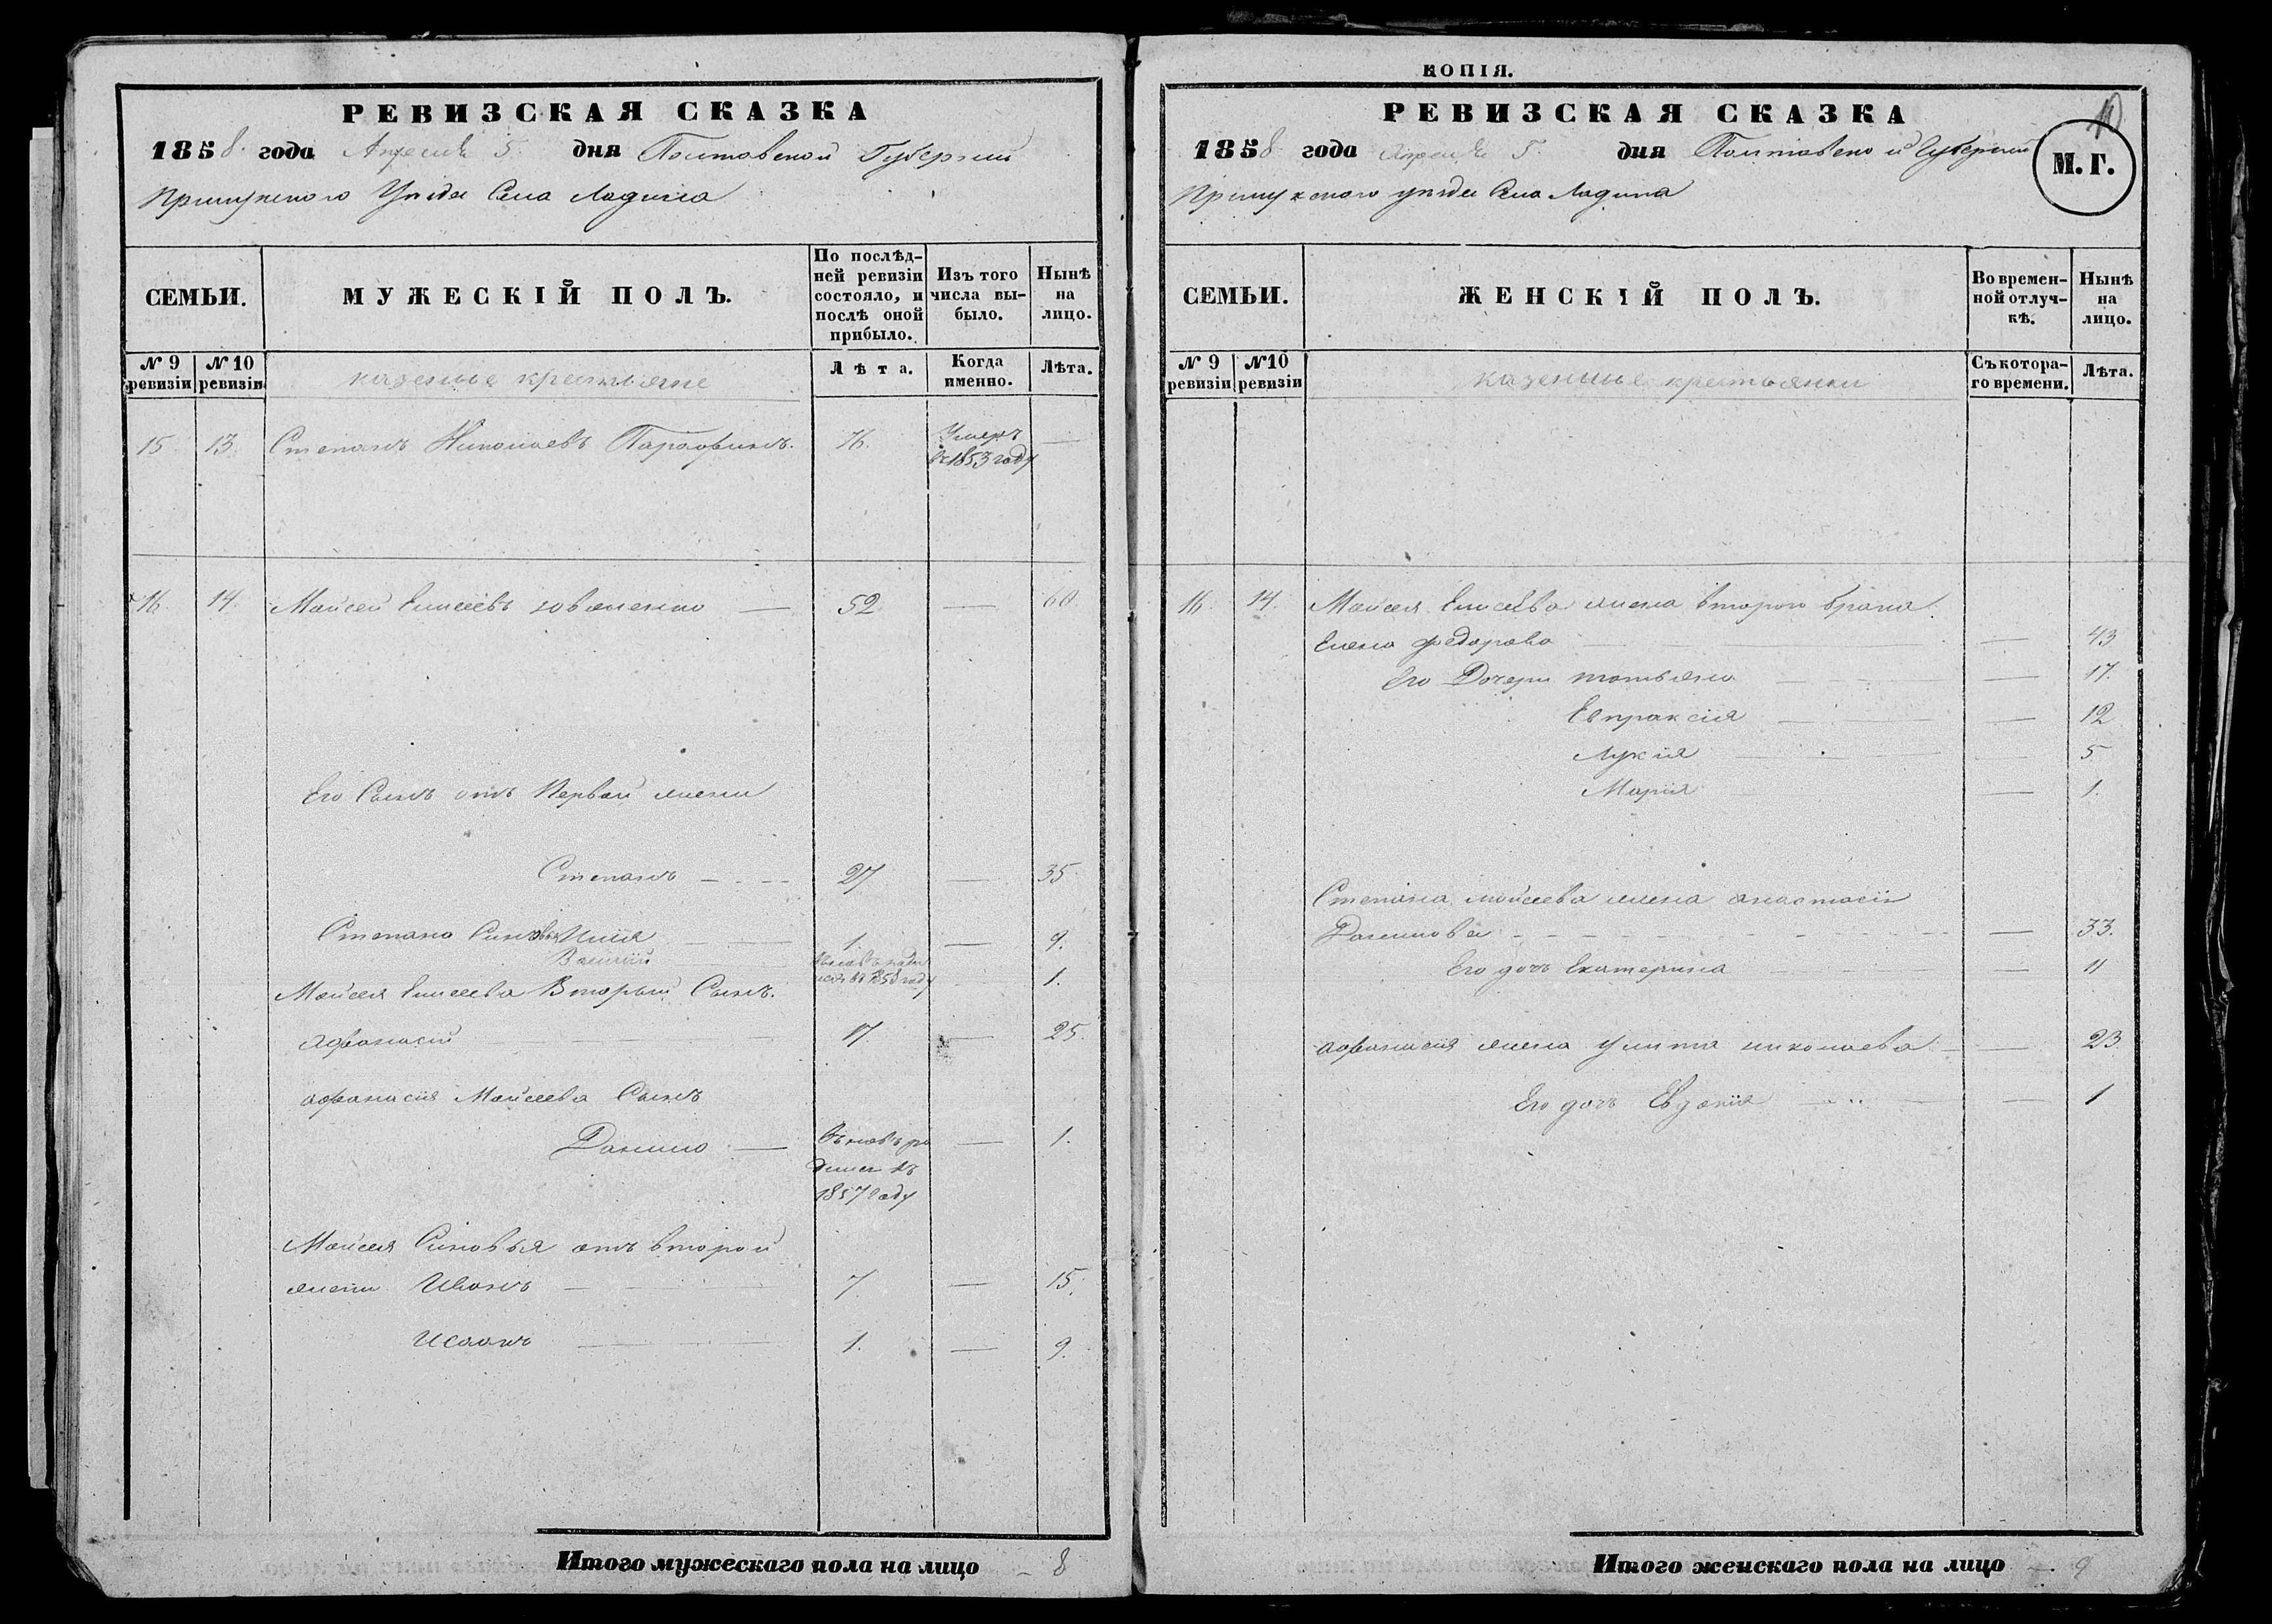 РЕВИЗСКАЯ СКАЗКА
1858. года Апреля 5 дня Полтавской Губернии
Прилуцкого Уезда Села Ладина
СЕМЬИ.
МУЖЕСКІЙ ПОЛЪ.
По послѣд-
ней ревизіи
состояло, и
послѣ оной
прибыло.
Изъ того
числа вы-
было.
Нынѣ
на
лицо.
№ 9
ревизіи
№ 10
ревизіи
казенные крестьяне
Лѣта.
Когда
именно.
Лѣта.
15 13. Степанъ Николаевъ 76. Умеръ —
въ 1853 году
16 14. Мойсей Елисеевъ — 52 — 60.
Его Сынъ отъ Первой жены
Степанъ — 27 — 35
Степана Илія — 1. — 9.
Василій —
въ 1858 году 1.
Мойсея Елисеева Вторый Сынъ.
Афанасій — 17 — 25.
Афанасія Мойсеева Сынъ
Данило — вновь ро — 1.
дился въ
1857 году
Мойсея Синовья отъ второй
жены Иванъ — 7. — 15.
Исаакъ — 1. — 9.
Итого мужескаго пола на лицо - 8
КОПІЯ.
10
РЕВИЗСКАЯ СКАЗКА
М. Г.
1858 года Апреля 5 дня Полтавской Губернии
Прилуцкого уезда Села Ладина
СЕМЬИ.
ЖЕНСКІЙ ПОЛЪ.
Во времен-
ной отлуч-
кѣ.
Нынѣ
на
лицо.
№ 9
ревизіи
№10
ревизіи
казенные крестьянки
Съ котора-
го времени.
Лѣта.
16. 14. Мойсея Елисеева жена второго брака
Елена Федорова — — 43
Его Дочери Татьяна — — 17.
Евпраксія — — 12
Лукія — — 5
Марія — — 1.
Степана Мойсеева жена Анастасія
Данилова — — 33.
Его дочь Екатерина — — 11
Афанасія жена Улита Николаева — — 23.
Его дочь Евдокія — — 1
Итого женскаго пола на лицо -. 9